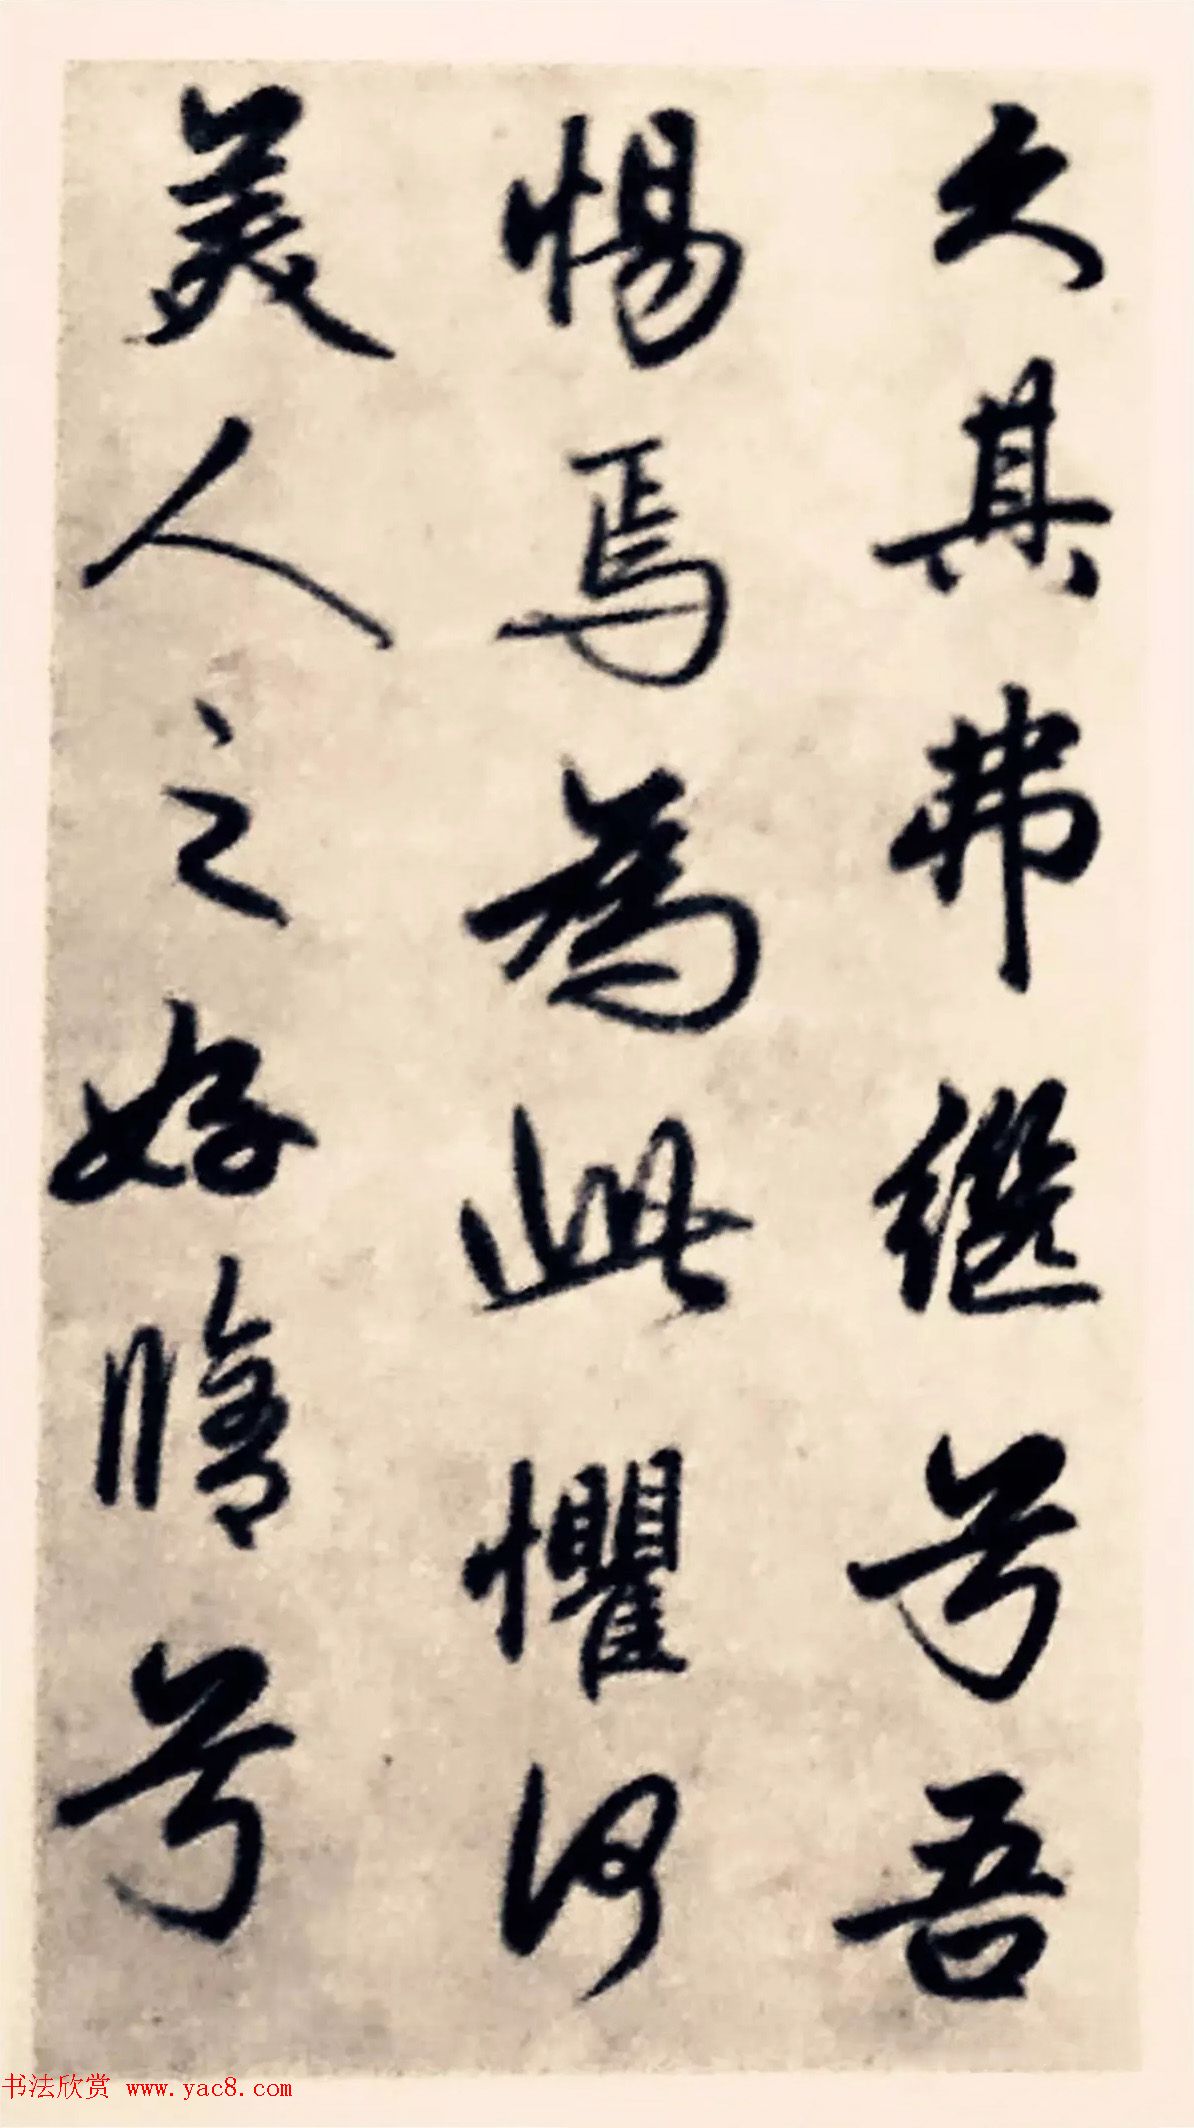 久其弗继兮吾
惕焉为此惧何
美人之好脩兮
书法欣赏 www.yac8.com